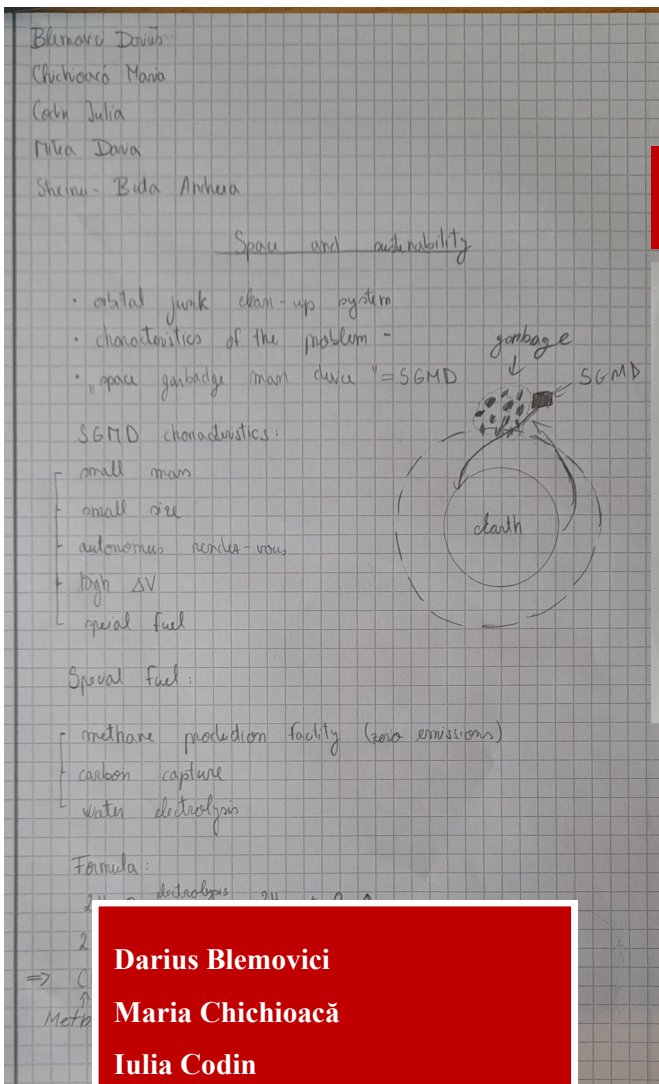 Blemovici Darius
Chichioacă Maria
Codin Iulia
Daria
Andreea
Space and sustenability
• orbital junk clean-up system
• characteristics of the problem -
• „space garbadge man device" = SGMD
garbage
SGMD
Earth
SGMD characteristics:
small mass
small size
autonomus rendes-vous
high ΔV
special fuel
Special fuel:
methane production facility (zero emissions)
carbon capture
water electrolysis
Formula:
electrolysis
2
=>
Darius Blemovici
Maria Chichioacă
Iulia Codin